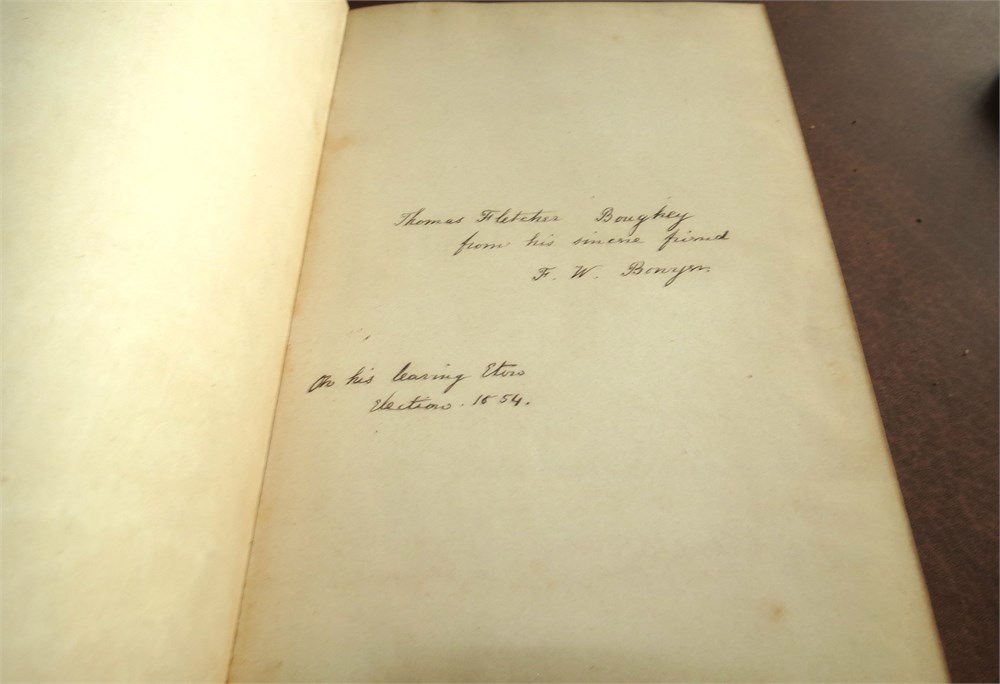 Thomas Fletcher Boughey
from his sincere friend
F. W.
On his leaving Eton
Election. 1854.